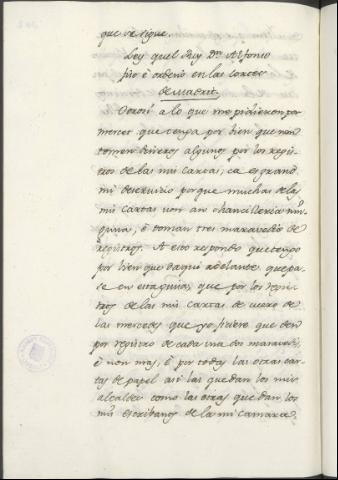 que se sigue.
Ley quel Rey Dn. Alfonso
fiso é ordenó en las cortes
de Madrit
Otrosi a lo que me pidieron por
merced que tenga por bien que non
tomen dineros algunos por los regis
tros de las mis cartas, ca es grand
mi deservicio porque muchas de las
mis cartas van an chancilleria nin
guna, é toman tres maravedis de
registros. A esto respondo que tengo
por bien que daqui adelante que pa-
se en esta guisa, que por los regis-
tros de las mis cartas de cuero de
las mercedes que yo ficiere que den
por registro de cada una dos maravedis,
é non mas, é por todas las otras car
tas de papel asi las que dan los mis
alcaldes como las otras que dan, los
mis escribanos de la mi camara.